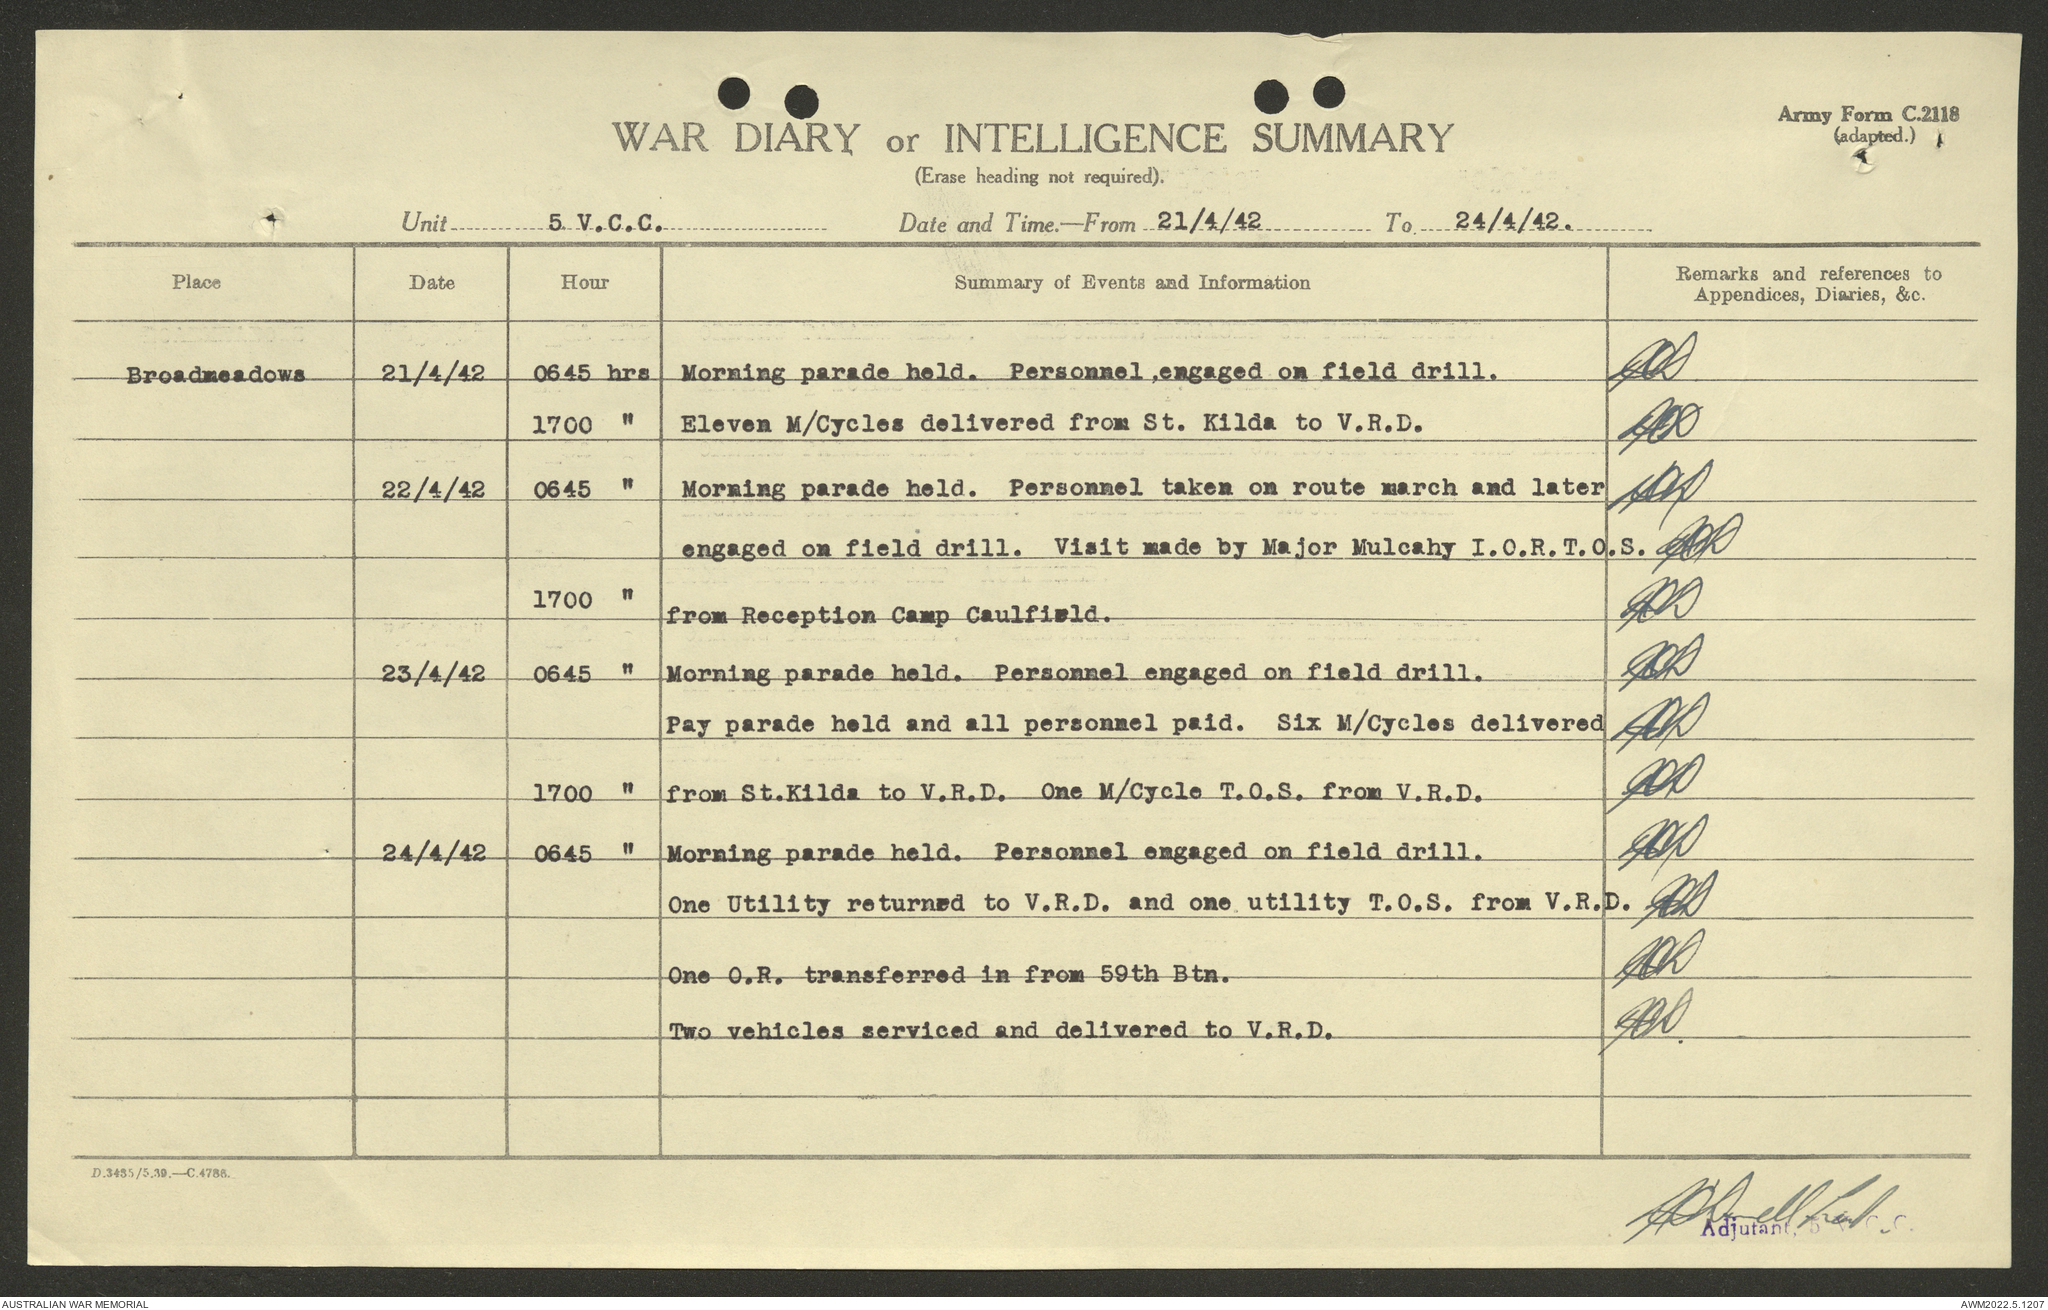 Army Form C.2118
(adapted.)
WAR DIARY or INTELLIGENCE SUMMARY
(Erase heading not required).
Unit 5 V.C.C. Date and Time.—From 21/4/42 To 24/4/42.
Place Date Hour Summary of Events and Information Remarks and references to
Appendices, Diaries, &c.
Broadmeadows 21/4/42 0645 hrs Morning parade held. Personnel engaged on field drill.
1700 " Eleven M/Cycles delivered from St. Kilda to V.R.D.
22/4/42 0645 " Morning parade held. Personnel taken on route march and later
engaged on field drill. Visit made by Major Mulcahy I.O.R.T.O.S.
1700 " from Reception Camp Caulfield.
23/4/42 0645 " Morning parade held. Personnel engaged on field drill.
Pay parade held and all personnel paid. Six M/Cycles delivered
1700 " from St.Kilda to V.R.D. One M/Cycle T.O.S. from V.R.D.
24/4/42 0645 " Morning parade held. Personnel engaged on field drill.
One Utility returned to V.R.D. and one utility T.O.S. from V.R.D.
One O.R. transferred in from 59th Btn.
Two vehicles serviced and delivered to V.R.D.
D.3485/5.39.—C.4786.
Adjutant, 5 V.C.C.
AUSTRALIAN WAR MEMORIAL AWM2022.5.1207